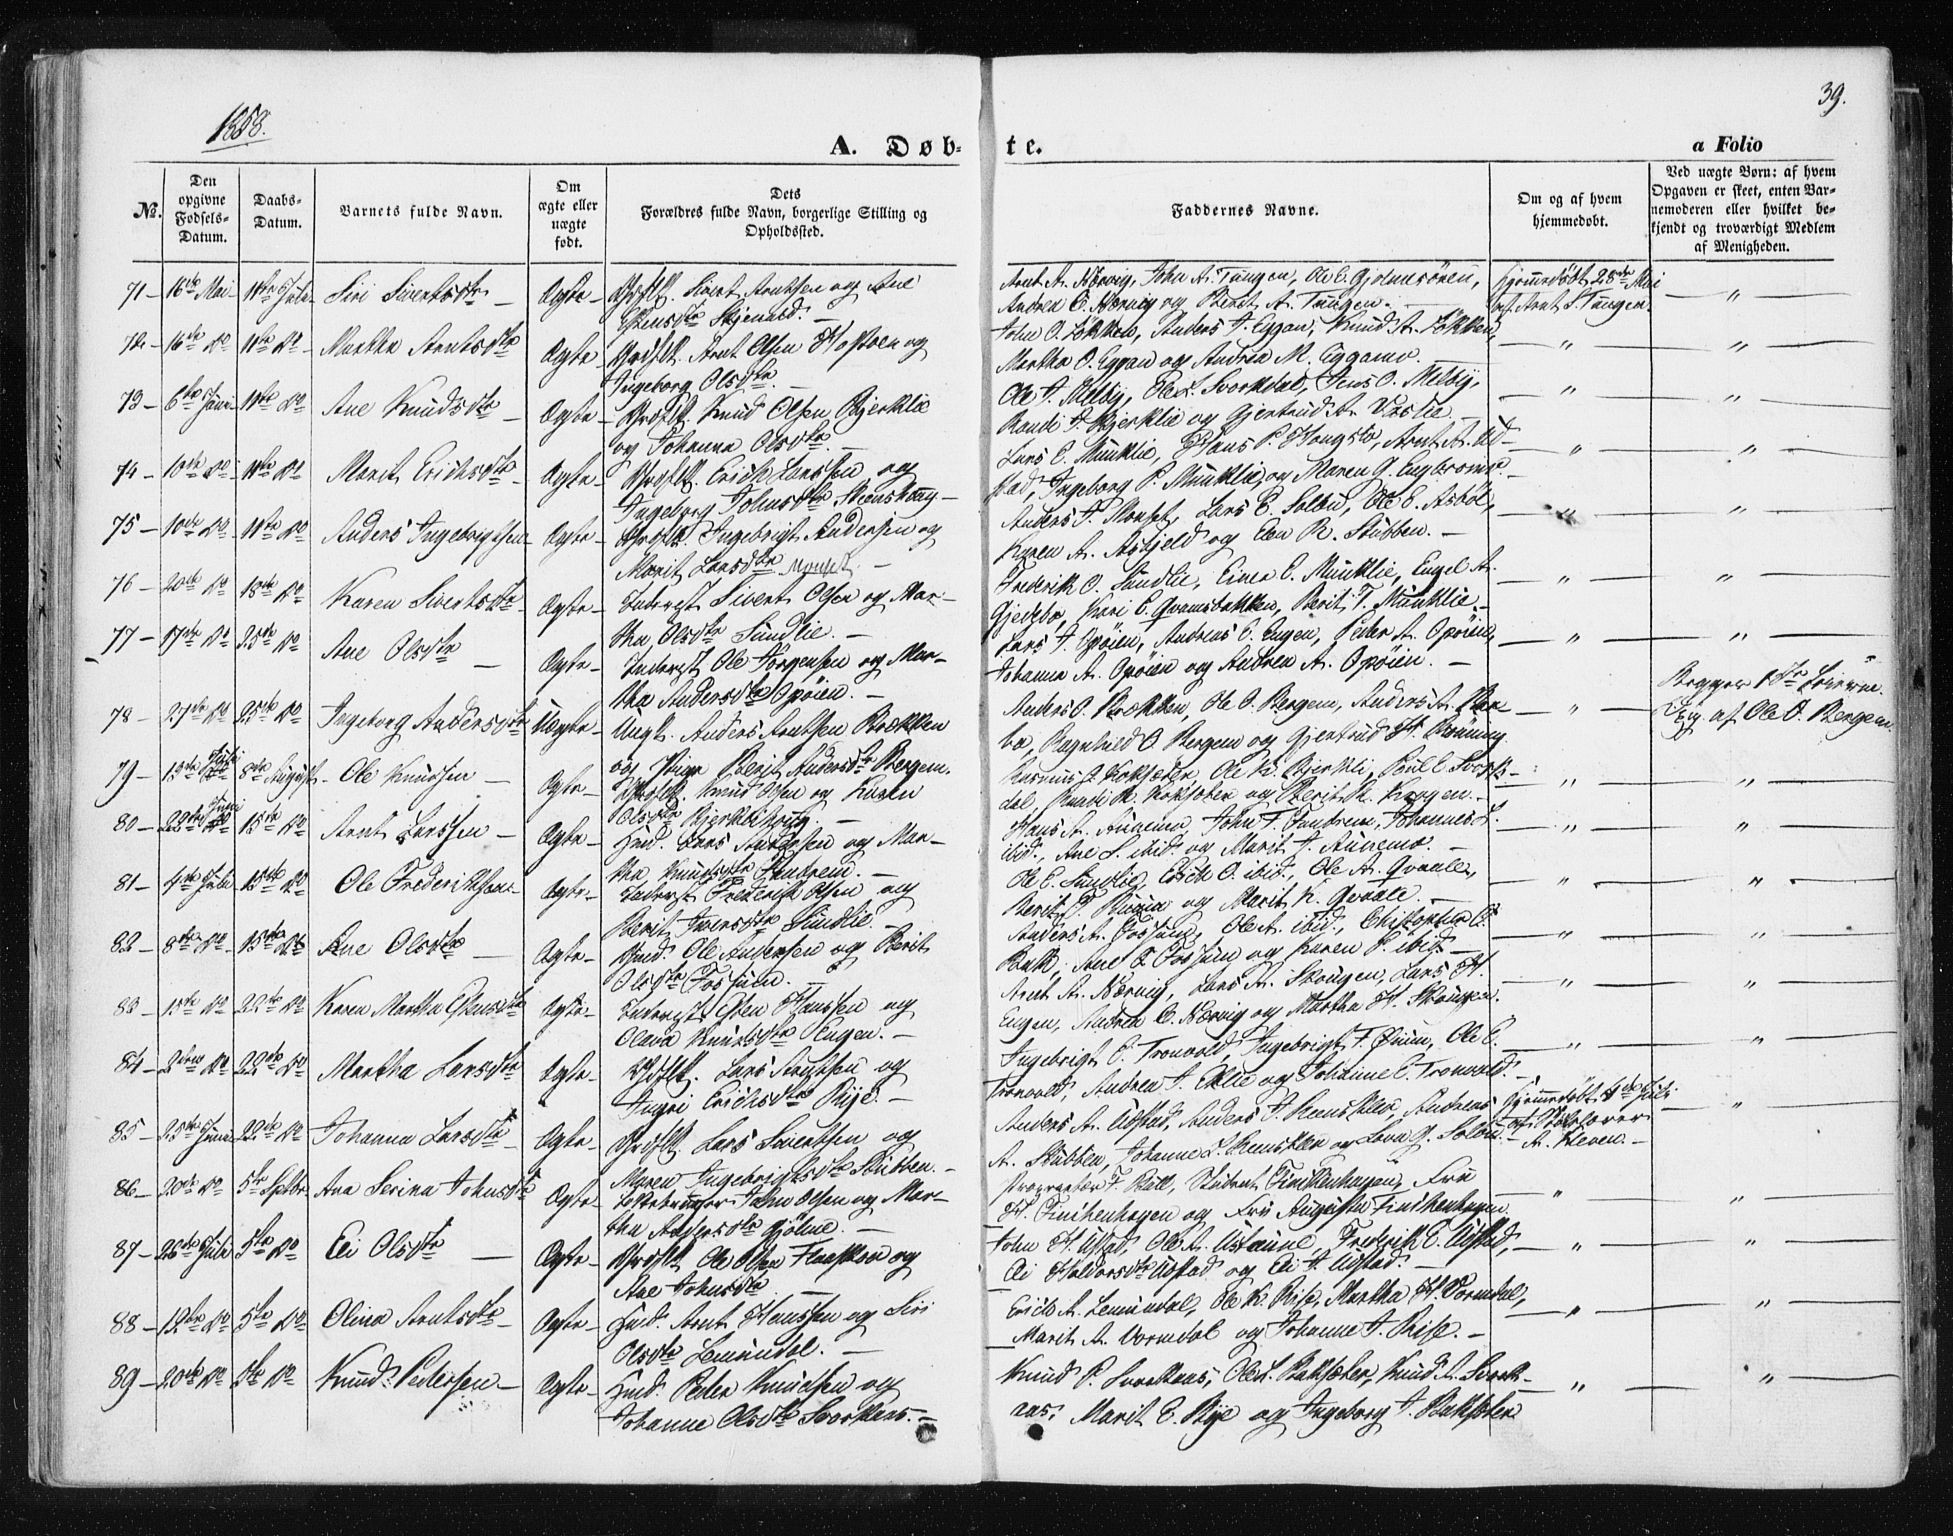 1858.
39.
A. Døb-
te.
a Folio
No.
Den opgivne Fødsels-Datum.
Daabs-Datum.
Barnets fulde Navn.
Om ægte eller uægte født.
Dets Forældres fulde Navn, borgerlige Stilling og Opholdssted.
Faddernes Navne.
Om og af hvem hjemmedøbt.
Ved uægte Børn: af hvem Opgaven er skeet, enten Barnemoderen eller hvilket bekjendt og troværdigt Medlem af Menigheden.
71 – 16de Mai – 11te Juli – Siri Sivertsdtr – Ægte – Sivert Arntsen og Ane
Estensdtr Skjenald. –
Arnt A. Nærvig, John A. Tungen, Ole E. Gjølmesøren,
Andrea E. Nærvig og Berit A. Tungen. –
Hjemmedøbt 28de Mai
af Arnt S. Tungen. "
72 – 16de Do – 11te Do – Martha Arntsdtr – Ægte – Arnt Olsen Hostoen og
Ingeborg Olsdtr. –
John O. Løkken, Anders J. Eggan, Knud A. Løkken,
Martha O. Eggan og Andrea M. Eggamo. – " "
73 – 6te Juni – 11te Do – Ane Knudsdtr – Ægte – Knud Olsen Bjerklie
og Johanna Olsdtr. –
Ole J. Melby, Ole L. Svorkdal, Jens O. Melby,
Randi J. Bjerklie og Gjertrud A. Vaslie. – " "
74 – 10de Do – 11te Do – Marit Erichsdtr – Ægte – Erich Larssen og
Ingeborg Johnsdtr Menshaug –
Lars E. Muuklie, Hans P. Hongslo, Arnt A. Ud-
stad, Ingeborg P. Muuklie og Maren G. Engbromo. – " "
75 – 10de Do – 11te Do – Anders Ingebrigtsen – Ægte – Ingebrigt Andersen og
Marit Larsdtr Monset. –
Anders J. Monset, Lars E. Solbu, Ole E. Asbøl,
Karen A. Asbjeld og Elen R. Stubben. – " "
76 – 20de Do – 18de Do – Karen Sivertsdtr – Ægte – Inderst Sivert Olsen og Mar-
tha Olsdtr Sundlie. –
Frederik O. Sundlie, Einer E. Muuklie, Engel A.
Gjedebo, Kari E. Gramsbakken, Berit T. Muuklie. – " "
77 – 17de Do – 25de Do – Ane Olsdtr – Ægte – Inderst Ole Jørgensen og Mar-
tha Andersdtr Opøien. –
Lars J. Opøien, Andreas E. Engen, Peder A. Opøien,
Johanna A. Opøien og Andrea A. Opøien. – " "
78 – 27de Do – 25de Do – Ingeborg Andersdtr – Uægte – Ungk. Anders Arntsen Brekken
og Pige Berit Andersdtr Bergem.
Anders O. Brekken, Ole O. Bergem, Anders A.
bo, Ragnhild O. Bergem og Gjertrud H. Brønning. "
Begges 1ste Leierm.
Opg. af Ole O. Bergem.
79 – 13de Juli – 8de August – Ole Knudsen – Ægte – Knud Olsen og Karen
Olsdtr Bjerklihaug. –
Rasmus J. Kokseter, Ole K. Bjerkli, Poul E. Svork-
dal, Randi M. Kokseter og Berit K. Krogen. – " "
80 – 28de Juni – 15de Do – Arnt Larssen – Ægte – Husmd. Lars Andersen og Mar-
tha Knudsdtr Hundreim. –
Hans A. Aunemo, John T. Hundrem, Johannes L.
ibid., Ane L. ibid. og Marit J. Aunemo. – " "
81 – 4de Juli – 15de Do – Ole Frederiksen – Ægte – Inderst Frederik Olsen og
Berit Iversdtr Sundlie –
Ole E. Sundlie, Erich O. ibid., Ole A. Qvaale,
Berit P. og Marit K. Qvaale. – " "
82 – 8de Do – 15de Do – Ane Olsdtr – Ægte – Husmd. Ole Andersen og Berit
Olsdtr Fossum. –
Anders A. Fossum, Ole A. ibid., Christopher E.
Bakk, Ane E. Fossum og Karen P. ibid. – " "
83 – 15de Do – 22de Do – Karen Martha Estensdtr – Ægte – Inderst Esten Hanssen og
Olava Knudsdtr Engen. –
Arnt A. Nærvig, Lars A. Skougen, Lars H.
Engen, Andrea E. Nærvig og Martha H. Skougen. " "
84 – 2den Do – 22de Do – Martha Larsdtr – Ægte – Lars Arntsen og
Ingri Erichsdtr Rise. –
Ingebrigt E. Tronvold, Ingebrigt F. Øium, Ole E.
Tronvold, Andrea J. Eklie og Johanne E. Tronvold. – " "
85 – 25de Juni – 22de Do – Johanna Larsdtr – Ægte – Lars Sivertsen og
Maren Ingebrigtsdtr Stubben. –
Anders A. Udstad, Anders J. Kunsklev, Andreas
A. Stubben, Johanne L. Kunsklev og Lava G. Solbu. –
Hjemmedøbt 4de Juli
af Skolelærer
A. Kleven. – "
86 – 20de Do – 5te Septbr – Ane Serina Johnsdtr – Ægte – John Olsen og Mar-
tha Andersdtr Gjølme. –
F. Bull, Student Finkenhagen, Fru
H. Finkenhagen og Fru Augusta Finkenhagen. " "
87 – 28de Juli – 5te Do – Eli Olsdtr – Ægte – Ole Olsen Flaakken og
Ane Johnsdtr –
John H. Ustad, Ole A. Ustaune, Frederik E. Ustad,
Eli Haldorsdtr Udstad og Eli J. Ustad. – " "
88 – 19de Do – 5te Do – Olina Arntsdtr – Ægte – Husmd. Arnt Hanssen og Siri
Olsdtr Lemundal. –
Erich A. Lemundal, Ole K. Rise, Martha H. Vormdal,
Marit A. Vormdal og Johanne J. Rise. – " "
89 – 20de Do – 5te Do – Knud Pedersen – Ægte – Husmd. Peder Knudsen og
Johanne Olsdtr Svorkaas. –
Knud P. Svorkaas, Ole L. Bakseter, Knud A. Svork-
aas, Marit E. Rye og Ingeborg J. Bakseter " "